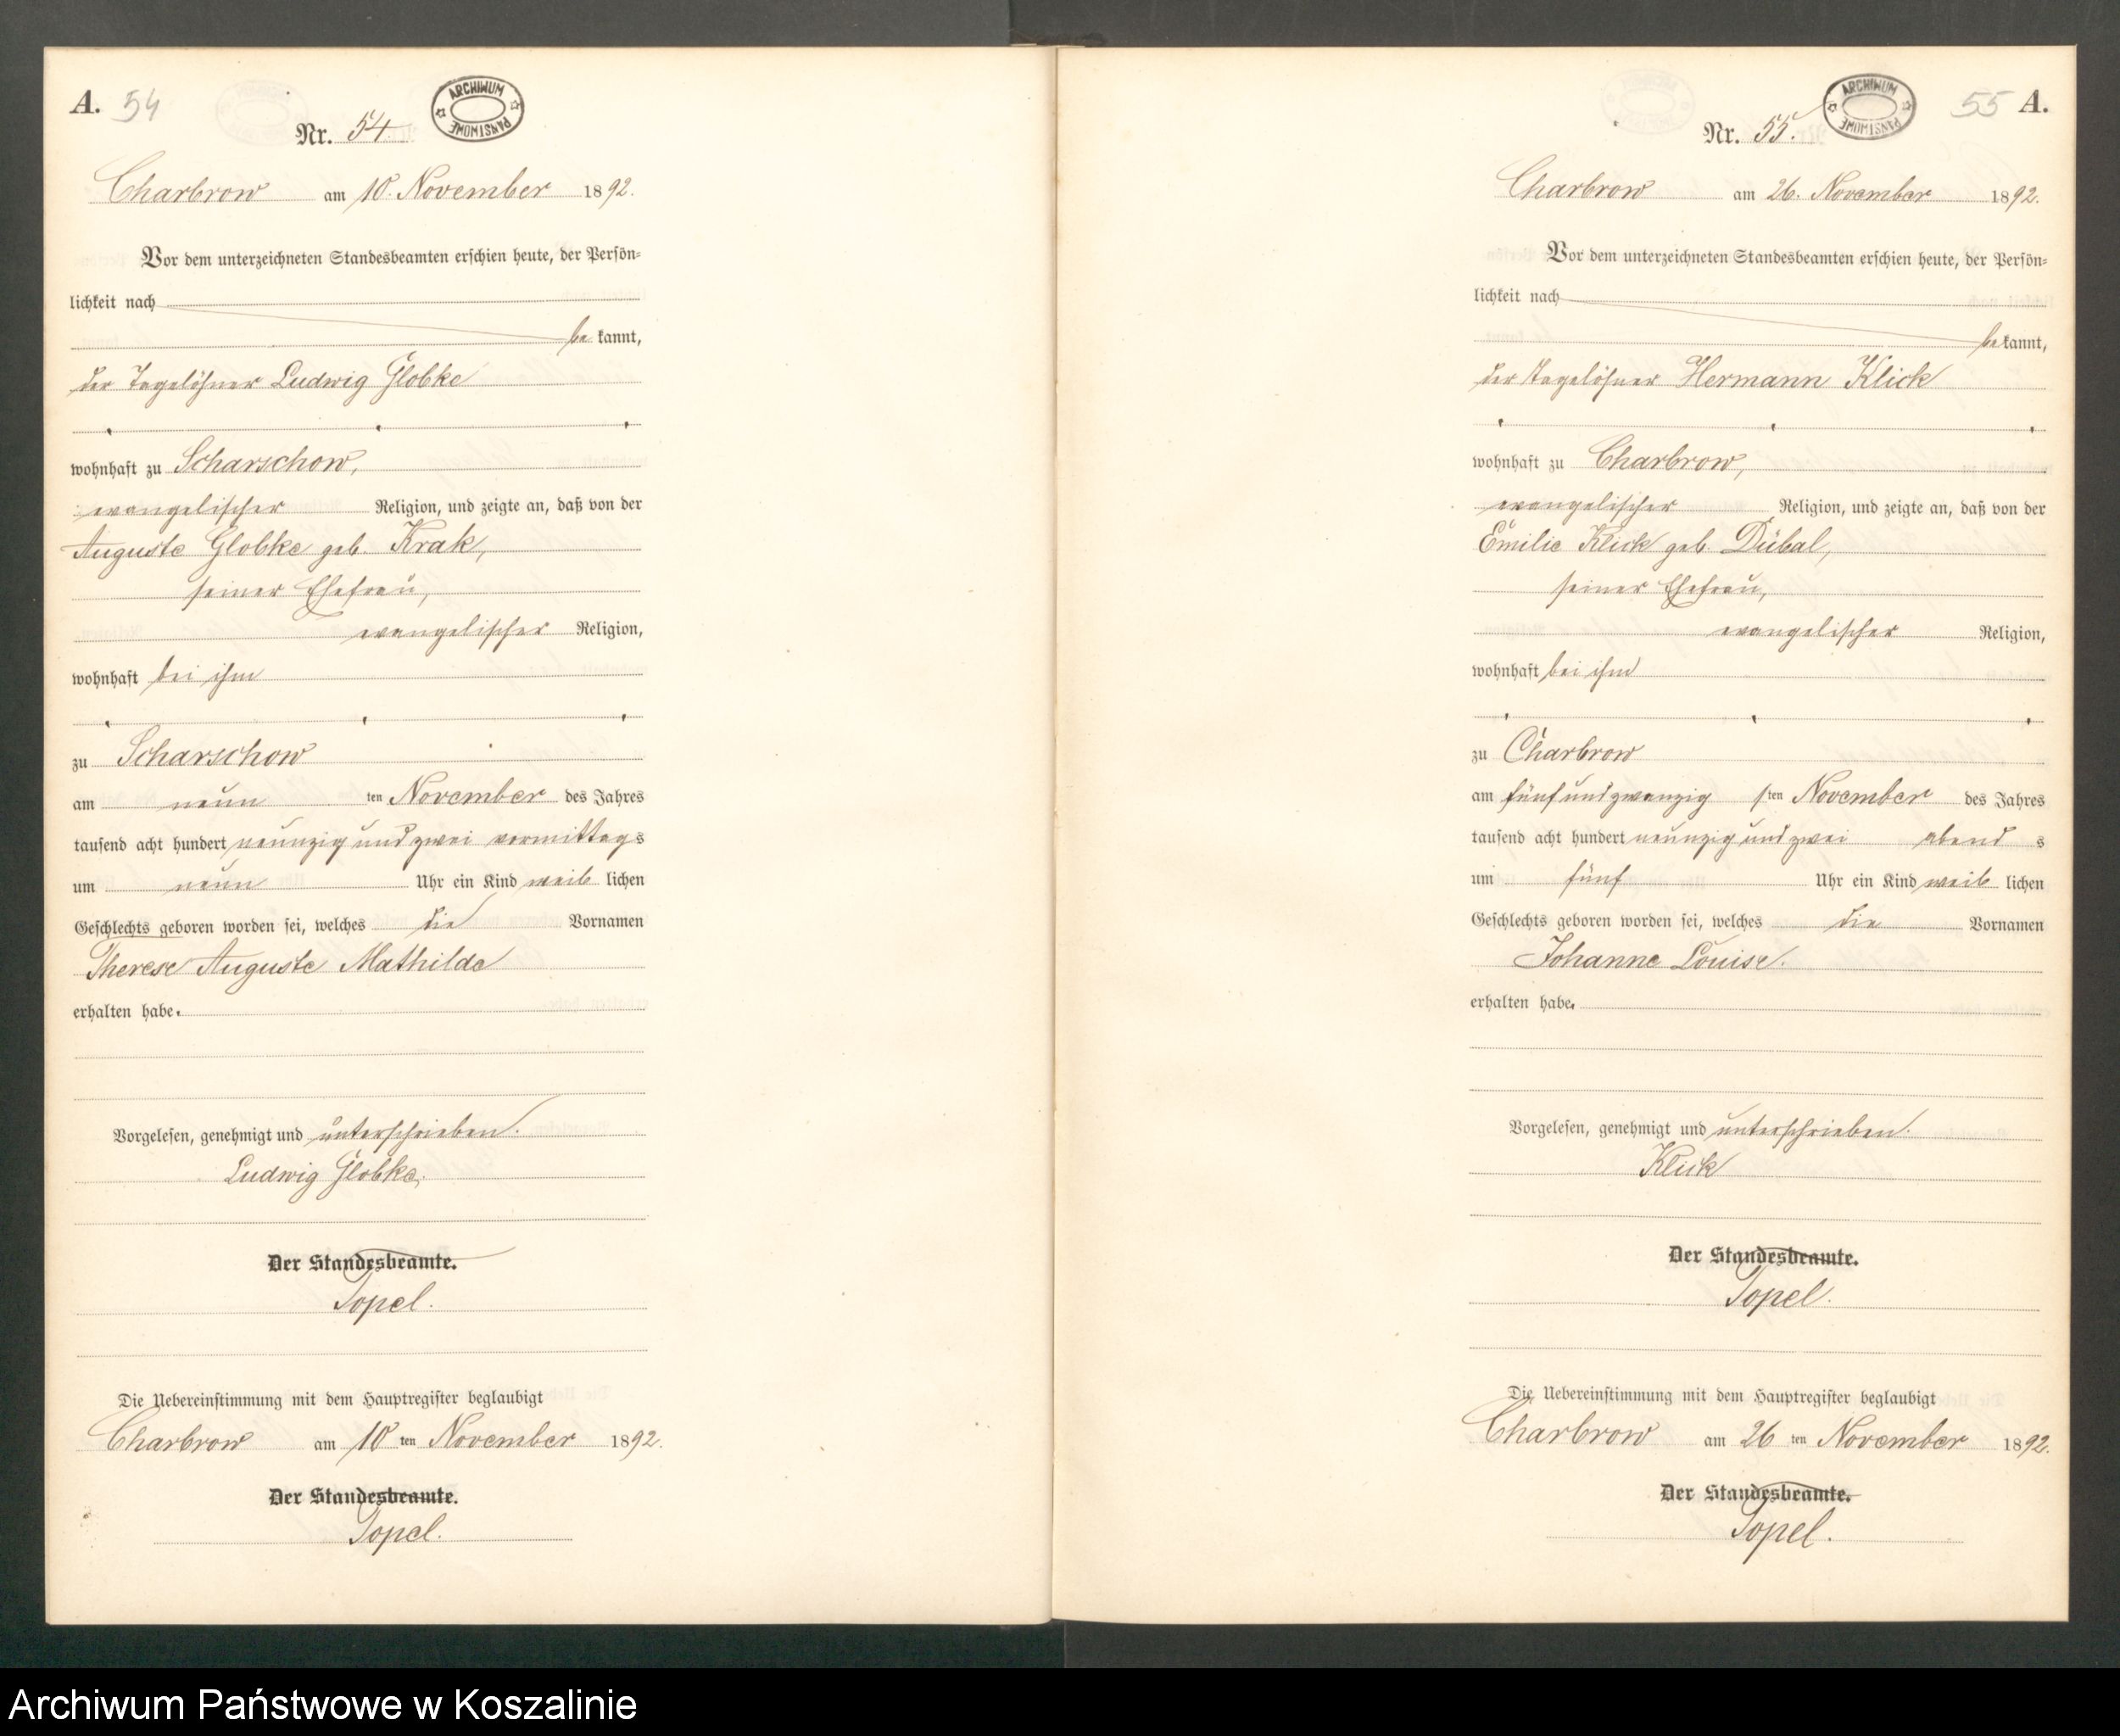 A. 54
ARCHIWUM PAŃSTWOWE
Nr. 54.
Charbrow am 10. November 1892.
Vor dem unterzeichneten Standesbeamten erschien heute, der Persön-
lichkeit nach
bekannt,
der Tagelöhner Ludwig Globke
wohnhaft zu Scharschow,
evangelischer Religion, und zeigte an, daß von der
Auguste Globke geb. Krak,
seiner Ehefrau,
evangelischer Religion,
wohnhaft bei ihm
zu Scharschow
am neun ten November des Jahres
tausend acht hundert neunzig und zwei vormittags
um neun Uhr ein Kind weiblichen
Geschlechts geboren worden sei, welches die Vornamen
Therese Auguste Mathilde
erhalten habe.
Vorgelesen, genehmigt und unterschrieben.
Ludwig Globke.
Der Standesbeamte.
Topel.
Die Uebereinstimmung mit dem Hauptregister beglaubigt
Charbrow am 10 ten November 1892.
Der Standesbeamte.
Topel.
55 A.
ARCHIWUM PAŃSTWOWE
Nr. 55.
Charbrow am 26. November 1892.
Vor dem unterzeichneten Standesbeamten erschien heute, der Persön-
lichkeit nach
bekannt,
der Tagelöhner Hermann Klick
wohnhaft zu Charbrow,
evangelischer Religion, und zeigte an, daß von der
Emilie Klick geb. Dübal,
seiner Ehefrau,
evangelischer Religion,
wohnhaft bei ihm
zu Charbrow
am fünf und zwanzigsten November des Jahres
tausend acht hundert neunzig und zwei abends
um fünf Uhr ein Kind weiblichen
Geschlechts geboren worden sei, welches die Vornamen
Johanne Louise.
erhalten habe.
Vorgelesen, genehmigt und unterschrieben.
Klick
Der Standesbeamte.
Topel.
Die Uebereinstimmung mit dem Hauptregister beglaubigt
Charbrow am 26 ten November 1892.
Der Standesbeamte.
Topel.
Archiwum Państwowe w Koszalinie